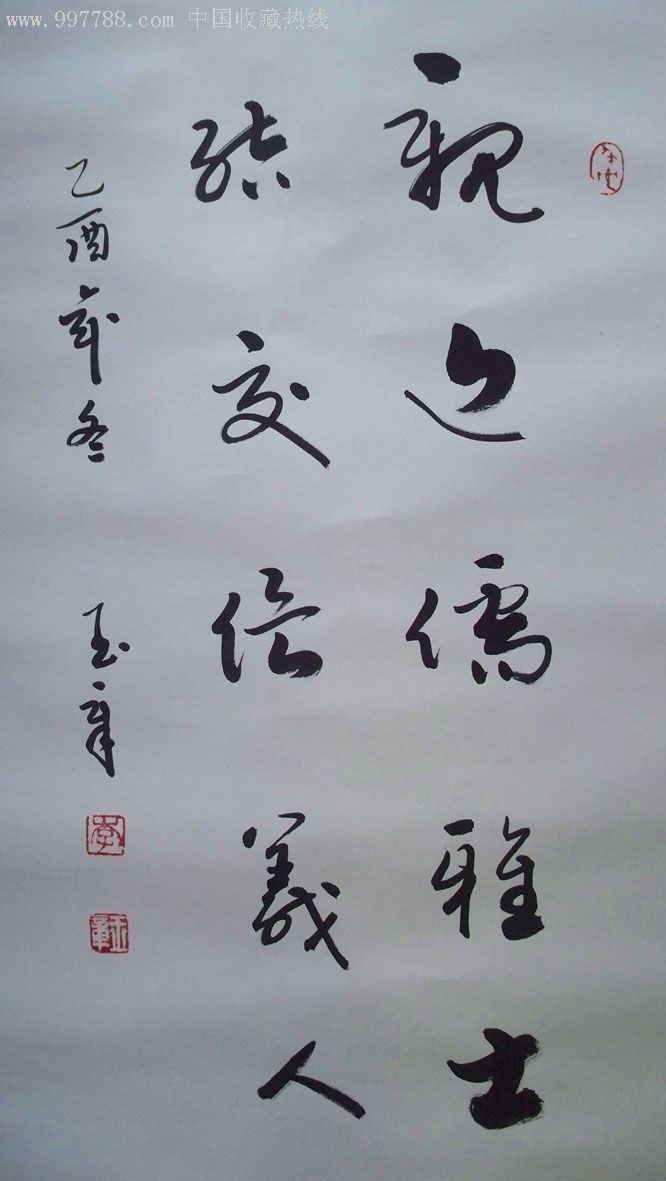 www.997788.com 中国收藏热线
親近儒雅士
結交信義人
乙酉年冬
玉章
李
玉章